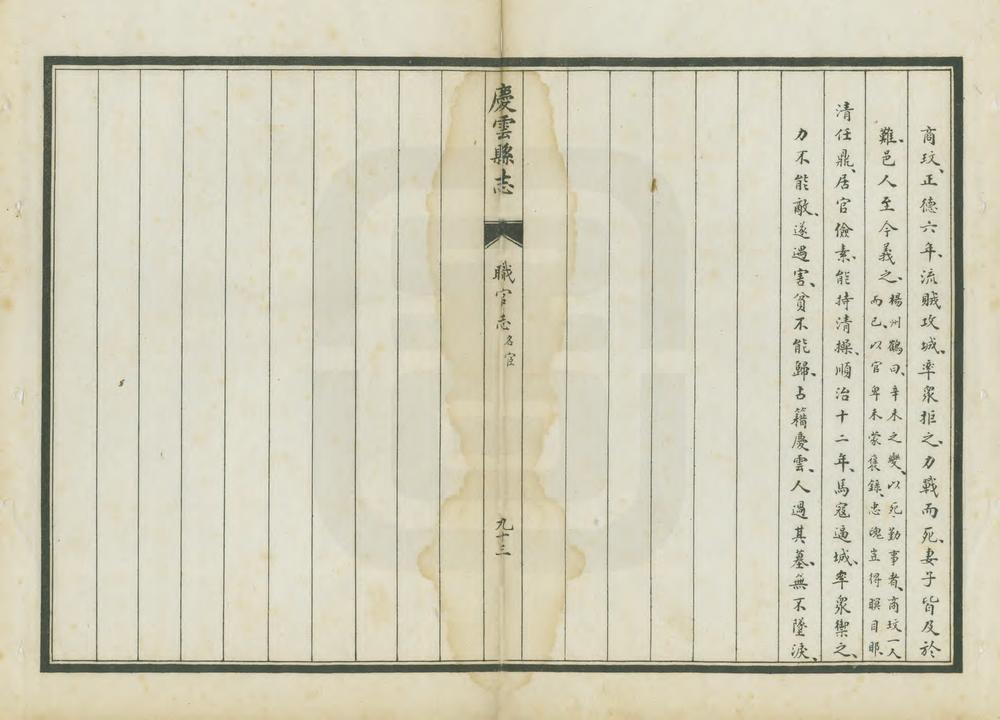 商玟、正德六年、流賊攻城、率衆拒之、力戰而死、妻子皆及於
難、邑人至今義之、楊州鶴曰、辛未之變、以死勤事者、商玟一人
而已、以官卑未蒙褒錄、忠魄豈得瞑目耶、
清任鼎、居官儉素、能持清操、順治十二年、馬寇逼城、率衆禦之、
力不能敵、遂遇害、貧不能歸、占籍慶雲、人過其墓、無不墮淚、
慶雲縣志
職官志 名宦
九十三